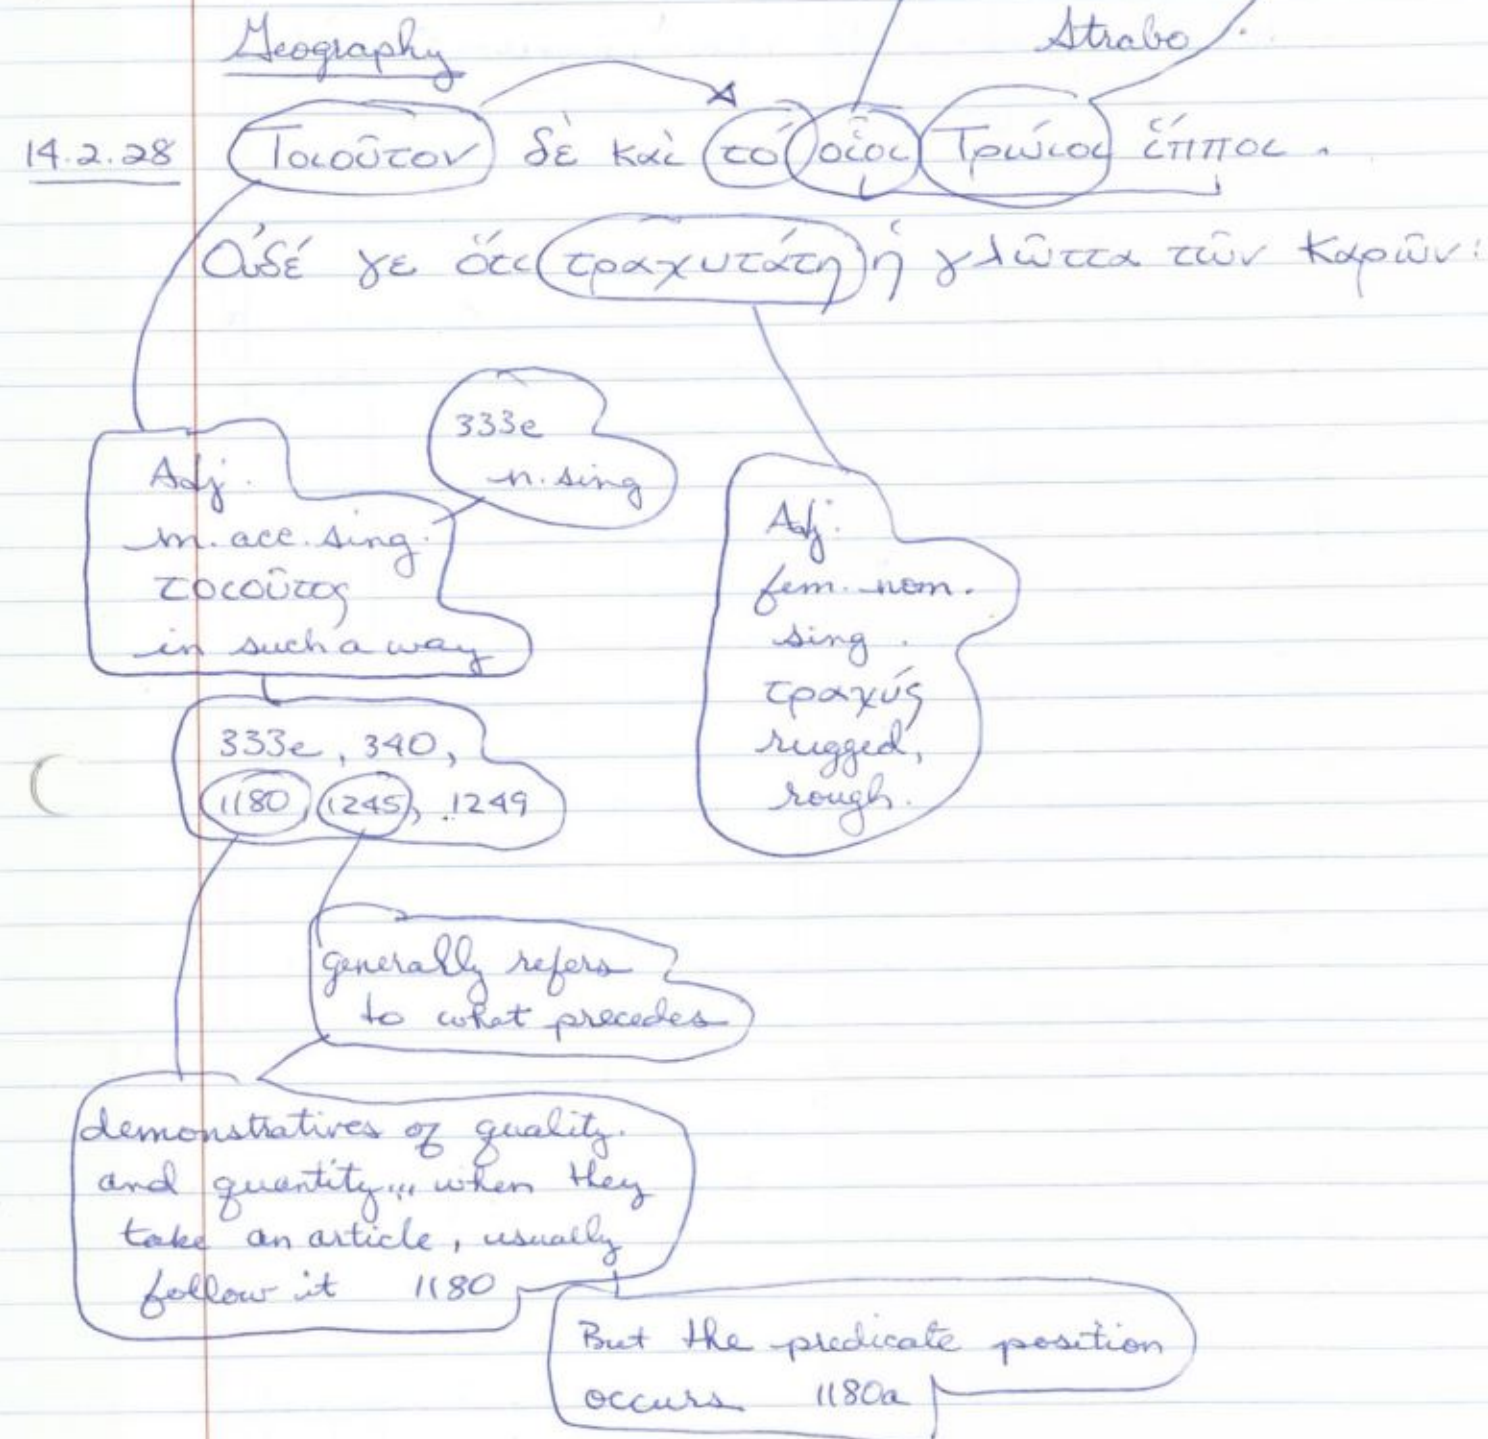 Geography Strabo
14.2.28 Τοιοῦτον δὲ καὶ τό οἷοι Τρώιοι ἵπποι.
Οὐδέ γε ὅτι τραχυτάτη ἡ γλῶττα τῶν Καρῶν:
333e
n. sing
Adj.
m. acc. sing.
τοιοῦτος
in such a way
Adj.
fem. nom.
sing.
τραχύς
rugged,
rough.
333e, 340,
1180 1245, 1249
generally refers
to what precedes
demonstratives of quality.
and quantity... when they
take an article, usually
follow it 1180
But the predicate position
occurs 1180a